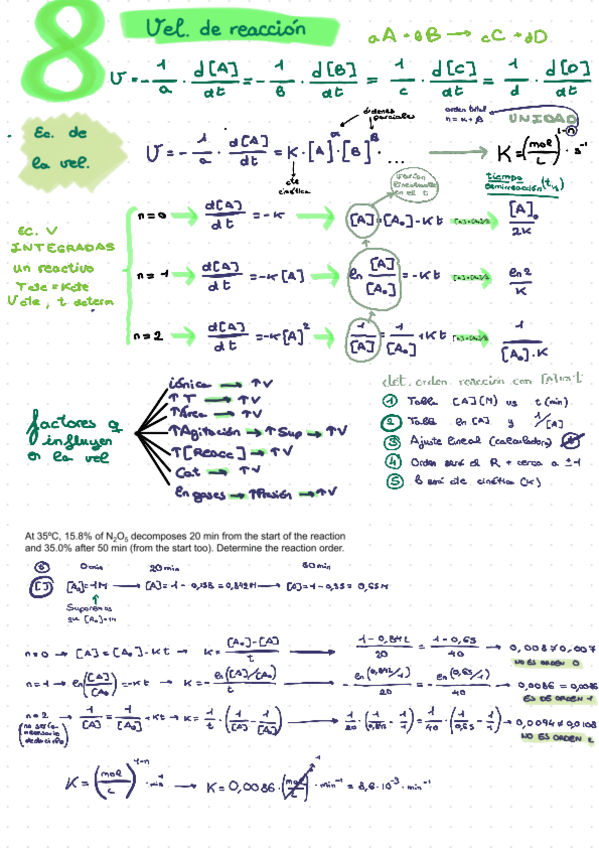 8
Vel. de reacción
aA + bB → cC + dD
v = - 1/a · d[A]/dt = - 1/b · d[B]/dt = 1/c · d[C]/dt = 1/d · d[D]/dt
Ec. de
la vel.
órdenes
parciales
orden total
UNIDAD
v = - 1/a · d[A]/dt = K · [A]^α · [B]^β · ...
cte
cinética
K = (mol/L)^1-n · s⁻¹
tiempo
semirreacción (t½)
EC. V
INTEGRADAS
un reactivo
n=0 → d[A]/dt = -K → [A] = [A₀] - Kt → [A]₀/2K
n=1 → d[A]/dt = -K[A] → ln [A]/[A₀] = -Kt → ln2/K
n=2 → d[A]/dt = -K[A]² → 1/[A] = 1/[A₀] + Kt → 1/[A₀]·K
factores q
influyen
en la vel
iónica → ↑V
↑T → ↑V
↑Área → ↑V
↑Agitación → ↑Sup → ↑V
↑[Reacc] → ↑V
Cat → ↑V
En gases → ↑Presión → ↑V
det. orden reacción con
1 Tabla [A](M) vs t(min)
2 Tabla ln[A] y 1/[A]
3 Ajuste lineal (calculadora)
4 Orden será el R + cerca a ±1
5 b será cte cinética (K)
At 35ºC, 15.8% of N₂O₅ decomposes 20 min from the start of the reaction
and 35.0% after 50 min (from the start too). Determine the reaction order.
0 min 20 min
[ ] [A₀]=1M → [A]=1-0,158=0,842M → [A]=1-0,35=0,65M
Suponemos
n=0 → [A]=[A₀]-Kt → K= [A₀]-[A]/t → 1-0,842/20 = 1-0,65/40 → 0,008≠0,007
NO ES ORDEN 0
n=1 → ln([A]/[A₀])=-Kt → K=- ln([A]/[A₀])/t → - ln(0,842/1)/20 = - ln(0,65/1)/40 → 0,0086 = 0,0086
ES DE ORDEN 1
n=2 → 1/[A] = 1/[A₀] + Kt → K= 1/t · (1/[A] - 1/[A₀]) → 0,0094≠0,0108
(no sería
necesario
NO ES ORDEN 2
K = (mol/L)^1-n · min⁻¹ → K = 0,0086 · (mol/L) · min⁻¹ = 8,6·10⁻³ · min⁻¹